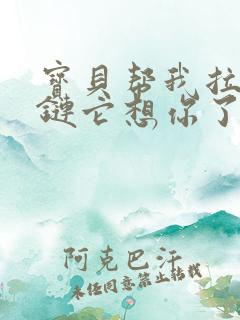 寳貝帮我拉
鏈它想你了
阿克巴汗
未经同意禁止转载